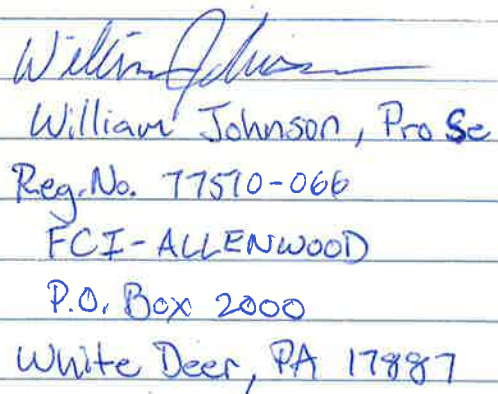 William Johnson
William Johnson, Pro Se
Reg. No. 77510-066
FCI-ALLENWOOD
P.O. Box 2000
White Deer, PA 17887